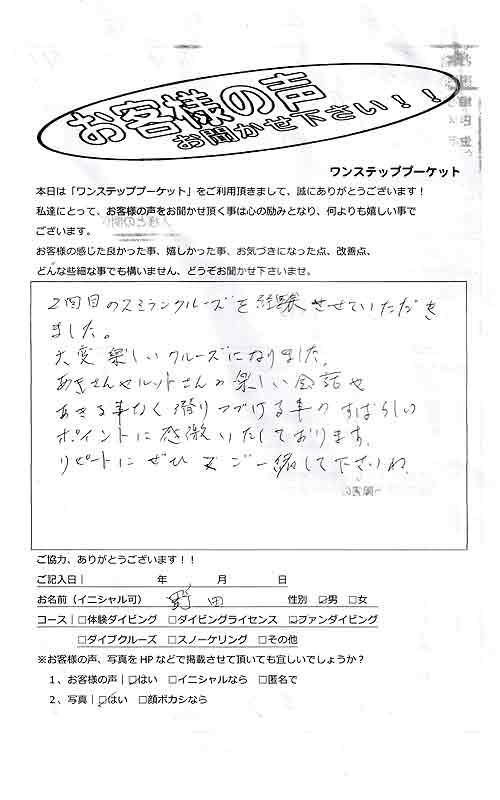 お客様の声
お聞かせ下さい！！
ワンステッププーケット
本日は「ワンステッププーケット」をご利用頂きまして、誠にありがとうございます！
私達にとって、お客様の声をお聞かせ頂く事は心の励みとなり、何よりも嬉しい事で
ございます。
お客様の感じた良かった事、嬉しかった事、お気づきになった点、改善点、
どんな些細な事でも構いません、どうぞお聞かせ下さいませ。
2回目のスミランクルーズを経験させていただき
ました。
大変楽しいクルーズになりました。
あきさんやルットさんの楽しい会話や
あきる事なく潜りつづける事のすばらしい
ポイントに感激いたしております。
リピートにぜひ又ご一緒して下さいね
ご協力、ありがとうございます！！
ご記入日｜ 年 月 日
お名前（イニシャル可） 野田 性別 ☑男 □女
コース｜□体験ダイビング □ダイビングライセンス ☑ファンダイビング
□ダイブクルーズ □スノーケリング □その他
※お客様の声、写真をHPなどで掲載させて頂いても宜しいでしょうか？
1、お客様の声｜☑はい □イニシャルなら □匿名で
2、写真｜☑はい □顔ボカシなら